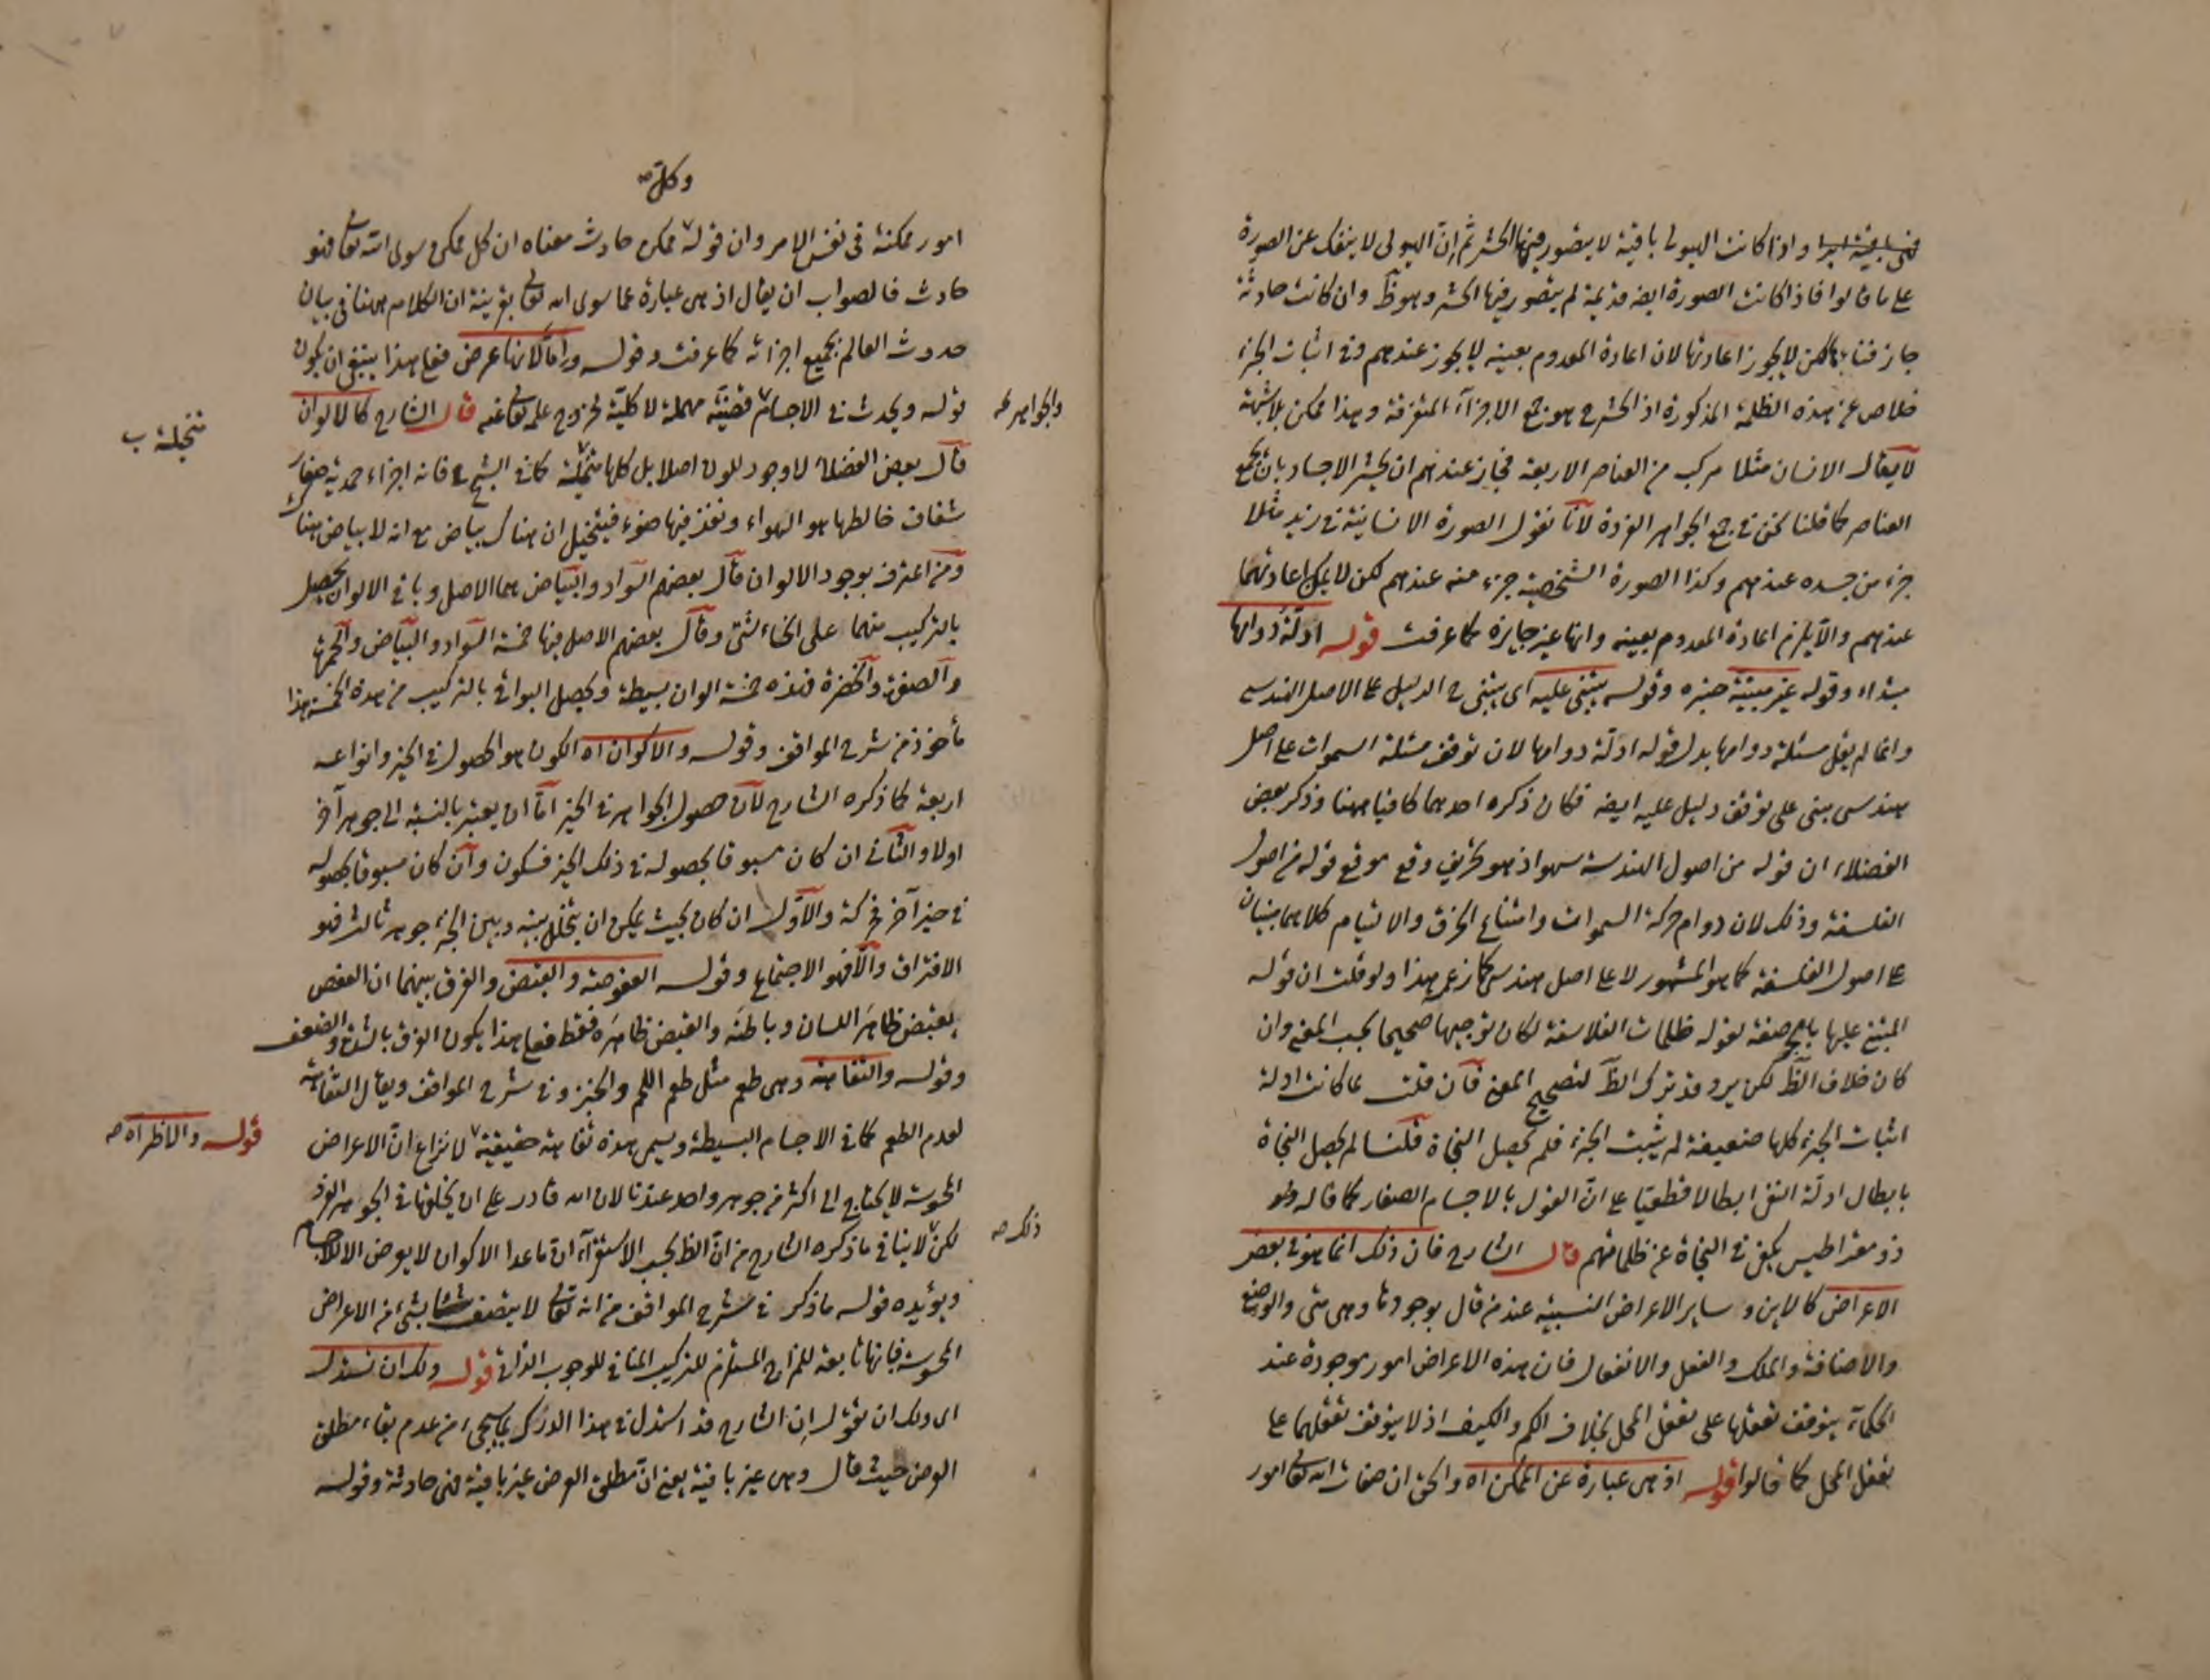 واذا كانت الهيولى باقية لا يتصور فيها الحشر ثم إنّ الهيولى لا ينفك عن الصورة
على ما قالوا فاذا كانت الصورة ايضه قديمة لم يتصور فيها الحشر وهو ظ وان كانت حادثة
جاز فناؤها لكن لا يجوز اعادتها لان اعادة المعدوم بعينه لا يجوز عندهم وفي اثبات الجزء
خلاص عن هذه الظلمة المذكورة اذ الحشر ح هو جمع الاجزاء المتفرقة وهذا ممكن بلا شبهة
لا يقال الانسان مثلا مركب من العناصر الاربعة فجاز عندهم ان يحشر الاجساد بان يجمع
العناصر كما قلنا نحن في جمع الجواهر الفردة لأنّا نقول الصورة الانسانية في زيد مثلا
جزء من جسده عندهم وكذا الصورة الشخصية جزء منه عندهم لكن لا يمكن اعادتهما
عندهم والا يلزم اعادة المعدوم بعينه وانها غير جايزة كما عرفت قوله ادلّة دوامها
مبتداء وقوله غير مبينة خبره وقوله يبتنى عليه اى يبتنى ح الدليل على الاصل الهندسي
وانما لم يقل مسئلة دوامها بدل قوله ادلّة دوامها لان توقف مسئلة السموات على اصل
هندسى مبنى على توقف دليل عليه ايضه فكان ذكره احدهما كافيا ههنا وذكر بعض
الفضلاء ان قوله من اصول الهندسة سهو اذ هو تحريف وقع موقع قوله من اصول
الفلسفة وذلك لان دوام حركة السموات وامتناع الخرق والالتيام كلاهما مبنيان
على اصول الفلسفة كما هو المشهور لا على اصل هندسى كما زعم هذا ولو قلت ان قوله
المبتنى عليها بالجر صفة لقوله ظلمات الفلاسفة لكان توجيها صحيحا بحسب المعنى وان
كان خلاف الظ لكن يرد وقد ترك الظ لتصحيح المعنى فان قلت لما كانت ادلة
اثبات الجزء كلها ضعيفة لم يثبت الجزء فلم يحصل النجاة قلنا لم يحصل النجاة
بابطال ادلّة النفى ابطالا قطعيّا على انّ القول بالاجسام الصغار كما قاله
ذومقراطيس يكفى في النجاة عن ظلماتهم قال الشارح فان ذلك انما هو في بعض
الاعراض كالاين وساير الاعراض النسبيّة عند من قال بوجودها وهى متى والوضع
والاضافة والملك والفعل والانفعال فان هذه الاعراض امور موجودة عند
الحكماء يتوقف تعقلها على تعقل المحل بخلاف الكم والكيف اذ لا يتوقف تعقلهما على
تعقل المحل كما قالوا قوله اذ هى عبارة عن الممكن اه والحق ان صفات الله تعالى امور
وكلّ صه
امور ممكنة في نفس الامر وان قوله ممكن حادث معناه ان كل ممكن سوى الله تعالى فهو
حادث فالصواب ان يقال اذ هى عبارة عما سوى الله تعالى بقرينة ان الكلام ههنا في بيان
حدوث العالم بجميع اجزائه كما عرفت وقوله فعلى هذا ينبغى ان يكون
قوله ويحدث في الاجسام قضيّة مهملة لا كليّة لخروج علمه تعالى عنه قال الشارح كالالوان
والجواهر
قال بعض الفضلاء لا وجود للون اصلا بل كلها متخيّلة كما في الثلج فانه اجزاء جمدية صغار
شفاف خالطها هو الهواء ونفذ فيها ضوء فيتخيل ان هناك بياض مع انه لا بياض هناك
ومن اعترف بوجود الالوان قال بعضهم السّواد والبياض هما الاصل وباقى الالوان يحصل
بالتركيب منهما على انحاء شتّى وقال بعضهم الاصل فيها خمسة السّواد والبياض والحمرة
والصفرة والخضرة فهذه خمسة الوان بسيطة ويحصل البواقى بالتركيب من هذه الخمسة هذا
مأخوذ من شرح المواقف وقوله والاكوان اه الكون هو الحصول في الحيز وانواعه
اربعة كما ذكره الشارح لان حصول الجواهر في الحيز امّا ان يعتبر بالنسبة الى جوهر آخر
اولا والثانى ان كان مسبوقا بحصوله في ذلك الحيز فسكون وان كان مسبوقا بحصوله
في حيز آخر فحركة والاوّل ان كان بحيث يمكن ان يتخلل بينه وبين الجزء جوهر ثالث فهو
الافتراق والا فهو الاجتماع وقوله العفوصة والقبض والفرق بينهما ان العفص
يقبض ظاهرَ اللسان وباطنَه والقبض ظاهرَه فقط فعلى هذا يكون الفرق بالشدة والضعف
وقوله والتفاهة وهى طعم مثل طعم اللحم والخبز وفي شرح المواقف ويقال التفاهة
لعدم الطعم كما في الاجسام البسيطة ويسمى هذه تفاهة حقيقية لا نزاع انّ الاعراض
قوله والاظهر اه صه
المحسوسة لا يحتاج الى اكثر من جوهر واحد عندنا لان الله قادر على ان يخلقها في الجوهر الفرد
لكن لا ينافى ما ذكره الشارح من انّ الظ بحسب الاستقراء ان ما عدا الاكوان لا يعرض الا للاجسام
ذلك صه
ويؤيده قوله ما ذكر في شرح المواقف من انه تعالى لا يتصف بشئ من الاعراض
المحسوسة فانها تابعة للمزاج المستلزم للتركيب المنافى للوجوب الذاتى قوله ولك ان تستدل
اى ولك ان تقول إن الشارح قد استدل في هذا الدرك بما سيجئ من عدم بقاء مطلق
العرض حيث قال وهى غير باقية يعنى انّ مطلق العرض غير باقية فهى حادثة وقوله